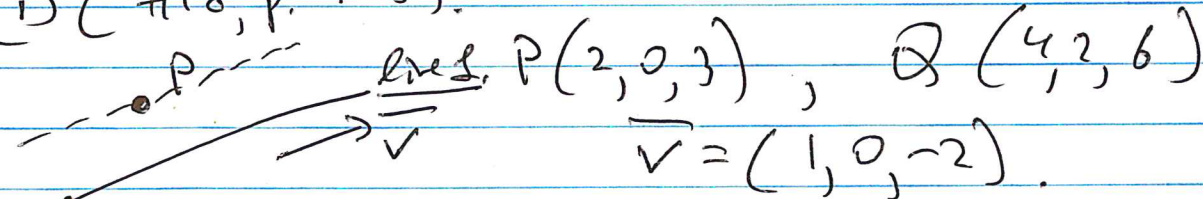 P line 1. P(2,0,3), Q(4,2,6)
v v=(1,0,-2).